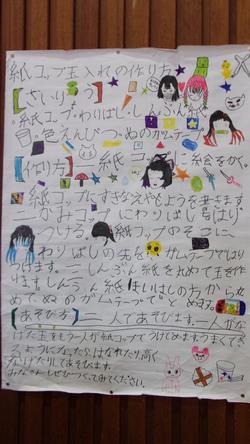 紙コップ玉入れの作り方
【ざいりょう】
紙コップ・わりばし・しんぶん
日・色えんぴつ・ぬのガムテープ
【作り方】一紙コップに絵をかく。
紙コップにすきなえやもようを書きます。
二かみコップにわりばしをはり
つける。紙コップのそこに
わりばしの先をガムテープではり
つけます。三しんぶん紙を丸めて玉を作
ります。しんぶん紙
めてぬのガムテープでとめます。
【あそび方】二人であそびます。一人がな
げた玉をもう一人が紙コップでつけてめます。うまくでき
るようになったりはなれたり高く
なげたりしてあそびます。
みなさんもぜひつくってみてください。